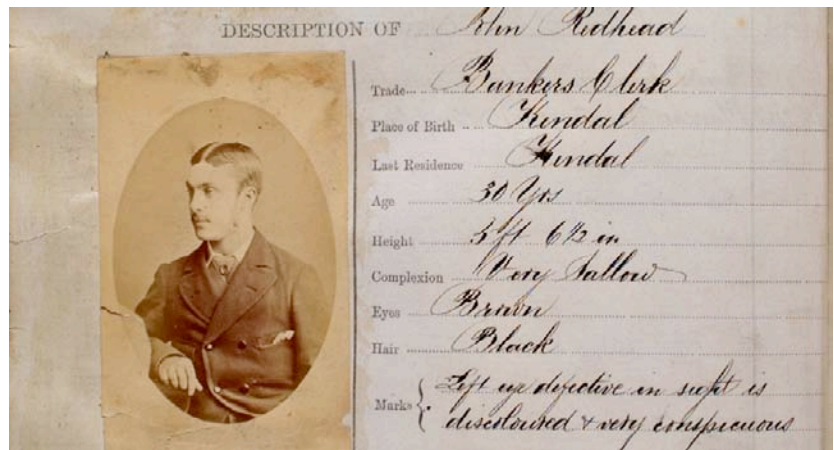 DESCRIPTION OF John Redhead
Trade Bankers Clerk
Place of Birth Kendal
Last Residence Kendal
Age 30 Yrs
Height 5 ft 6½ in
Complexion Very Sallow
Eyes Brown
Hair Black
Marks Left eye defective in sight is
discoloured & very conspicuous